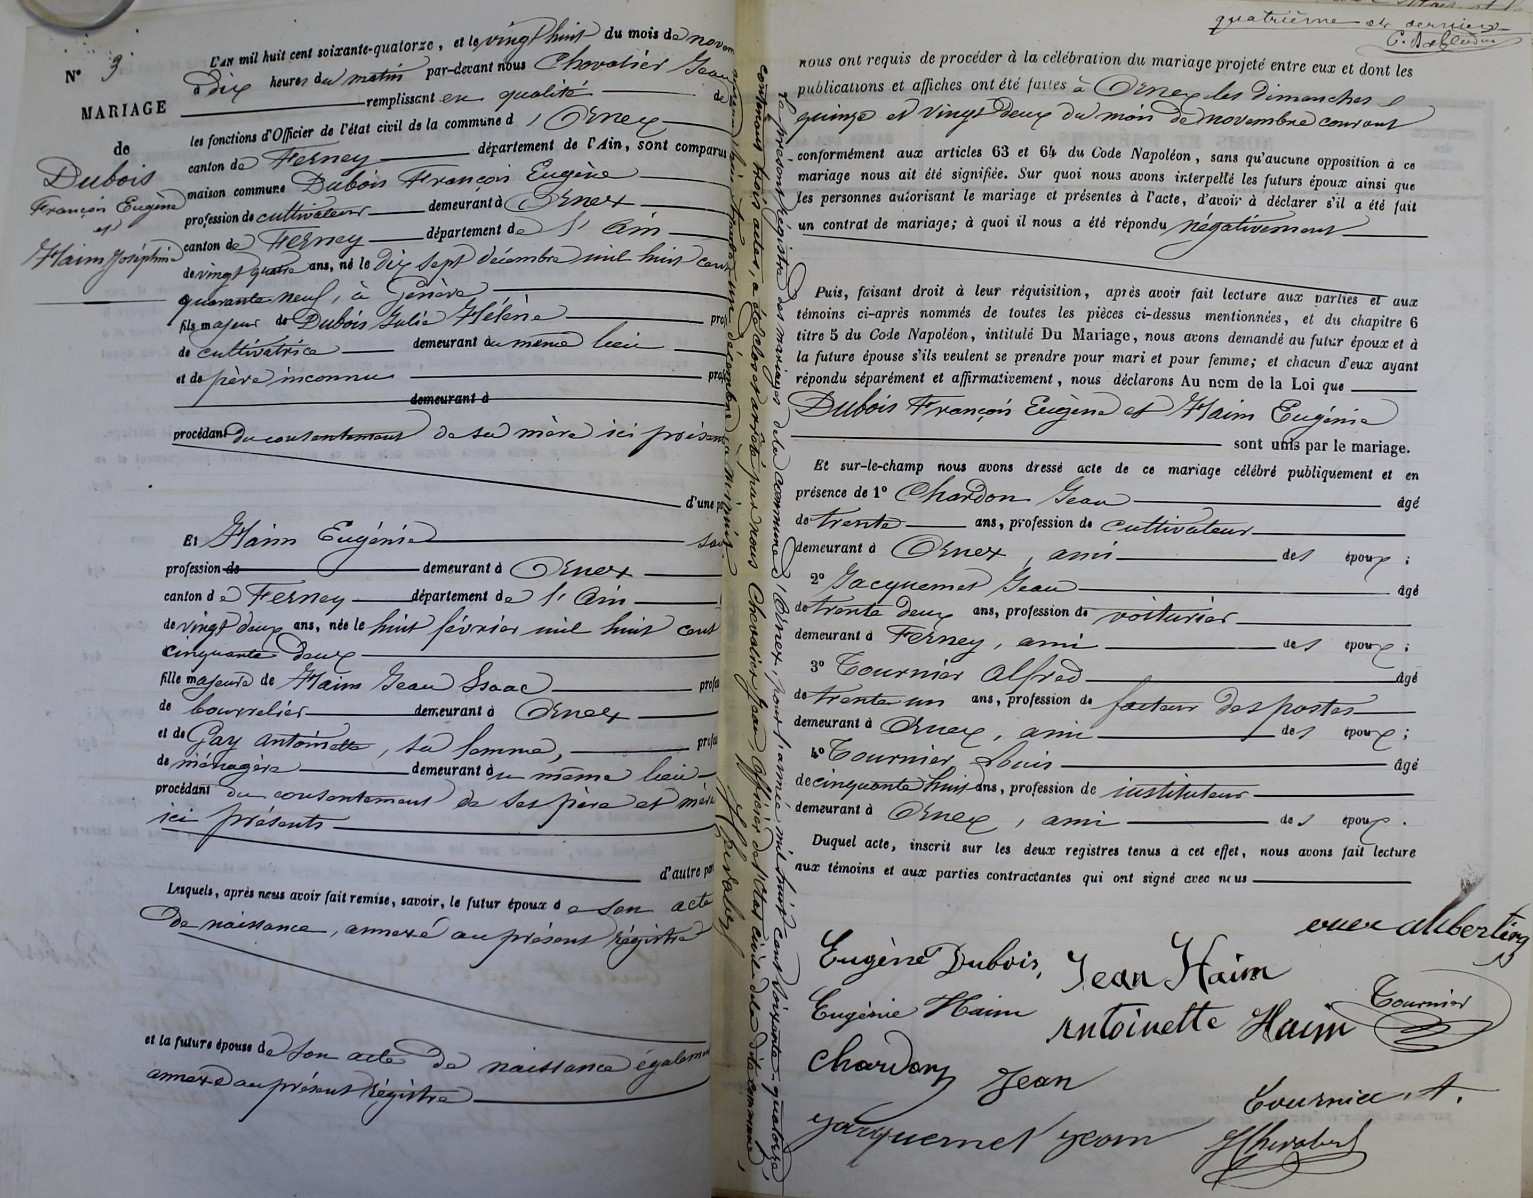 quatrième et dernier
N° 3
MARIAGE
de
Dubois
François Eugène
et
Haim Joséphine
L'an mil huit cent soixante-quatorze, et le vingt huit du mois de novem
à dix heures du matin par-devant nous Chevalier Jean
remplissant en qualité de
les fonctions d'Officier de l'état civil de la commune d'Ornex
canton de Ferney département de l'Ain, sont comparus
maison commune Dubois François Eugène
profession de cultivateur demeurant à Ornex
canton de Ferney département de l'Ain
de vingt quatre ans, né le dix sept décembre mil huit cent
quarante neuf, à Genève
fils majeur de Dubois Julie Hélène prof
de cultivatrice demeurant au même lieu
et de père inconnu prof
demeurant à
procédant du consentement de sa mère ici présente
d'une p
Et Haim Eugénie san
profession de demeurant à Ornex
canton de Ferney département de l'Ain
de vingt deux ans, née le huit février mil huit cent
cinquante deux
fille majeure de Haim Jean Isaac profe
de bourrelier demeurant à Ornex
et de Gay Antoinette, sa femme, profe
de ménagère demeurant au même lieu
procédant du consentement de ses père et mère
ici présents
d'autre par
Lesquels, après nous avoir fait remise, savoir, le futur époux de son acte
de naissance, annexé au présent Régistre
et la future épouse de son acte de naissance égalem
annexé au présent Régistre
Le présent Régistre des mariages de la commune d'Ornex, pour l'année mil huit cent soixante-quatorze,
contenant trois actes, a été clos et arrêté par nous Chevalier Jean, officier de l'Etat civil de la dite commune,
trente un décembre à minuit.
JChevalier
nous ont requis de procéder à la célébration du mariage projeté entre eux et dont les
publications et affiches ont été faites à Ornex les dimanches
quinze et vingt deux du mois de novembre courant
conformément aux articles 63 et 64 du Code Napoléon, sans qu'aucune opposition à ce
mariage nous ait été signifiée. Sur quoi nous avons interpellé les futurs époux ainsi que
les personnes autorisant le mariage et présentes à l'acte, d'avoir à déclarer s'il a été fait
un contrat de mariage; à quoi il nous a été répondu négativement
Puis, faisant droit à leur réquisition, après avoir fait lecture aux parties et aux
témoins ci-après nommés de toutes les pièces ci-dessus mentionnées, et du chapitre 6
titre 5 du Code Napoléon, intitulé Du Mariage, nous avons demandé au futur époux et à
la future épouse s'ils veulent se prendre pour mari et pour femme; et chacun d'eux ayant
répondu séparément et affirmativement, nous déclarons Au nom de la Loi que
Dubois François Eugène et Haim Eugénie
sont unis par le mariage.
Et sur-le-champ nous avons dressé acte de ce mariage célébré publiquement et en
présence de 1° Chardon Jean âgé
de trente ans, profession de cultivateur
demeurant à Ornex, ami des époux;
2° Jacquemet Jean âgé
de trente deux ans, profession de voiturier
demeurant à Ferney, ami des époux;
3° Tournier Alfred âgé
de trente un ans, profession de facteur des postes
demeurant à Ornex, ami des époux;
4° Tournier Louis âgé
de cinquante huit ans, profession de instituteur
demeurant à Ornex, ami des époux.
Duquel acte, inscrit sur les deux registres tenus à cet effet, nous avons fait lecture
aux témoins et aux parties contractantes qui ont signé avec nous
Eugène Dubois, Jean Haim
Eugénie Haim Antoinette Haim Tournier
chardon Jean
Tournier A.
Jacquemet Jean JChevalier